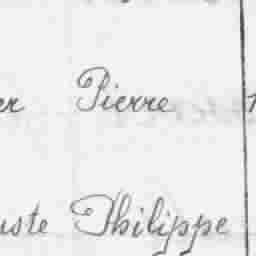 er Pierre
uste Philippe